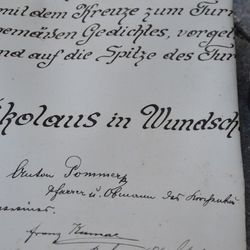 mit dem Kreuze zum Turm
gemäßen Gedichtes, vorgel
und auf die Spitze des Tur
ikolaus in Wundsch
Anton Pommer
Pfarrer u. Obmann des Kirchenbau
vereines.
Franz